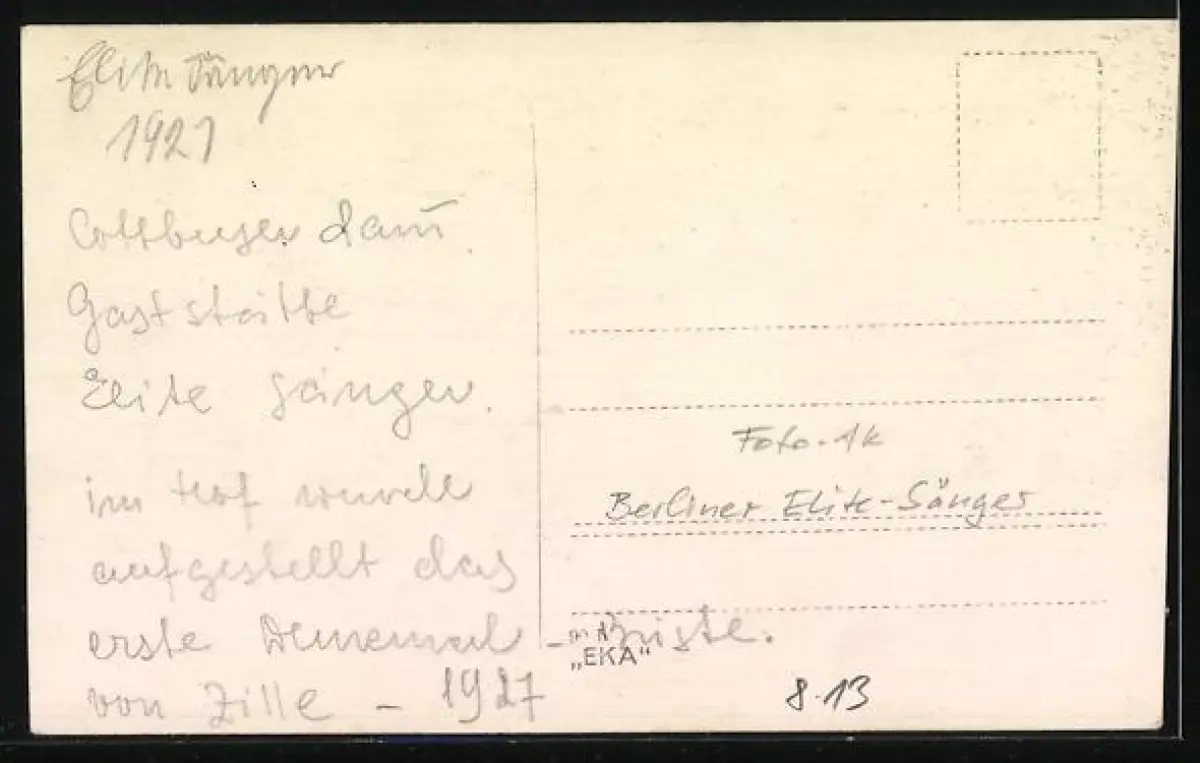 Elite Sänger
1921
Cottbuser Dam
Gaststätte
Elite Sänger.
im Hof wurde
aufgestellt das
erste Denkmal - Büste.
von Zille - 1927
Foto-Ak
Berliner Elite-Sänger
„EKA“
8.13